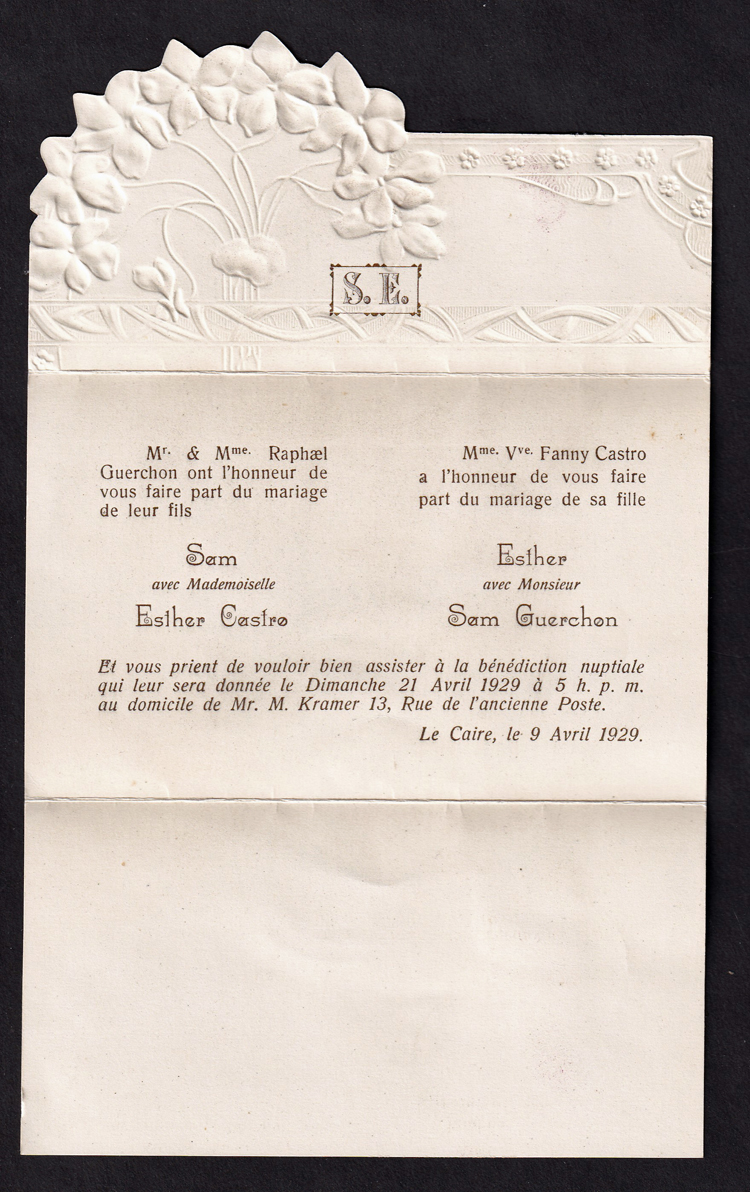 S. E.
Mr. & Mme. Raphæl
Guerchon ont l'honneur de
vous faire part du mariage
de leur fils
Sam
avec Mademoiselle
Esther Castro
Mme. Vve. Fanny Castro
a l'honneur de vous faire
part du mariage de sa fille
Esther
avec Monsieur
Sam Guerchon
Et vous prient de vouloir bien assister à la bénédiction nuptiale
qui leur sera donnée le Dimanche 21 Avril 1929 à 5 h. p. m.
au domicile de Mr. M. Kramer 13, Rue de l'ancienne Poste.
Le Caire, le 9 Avril 1929.